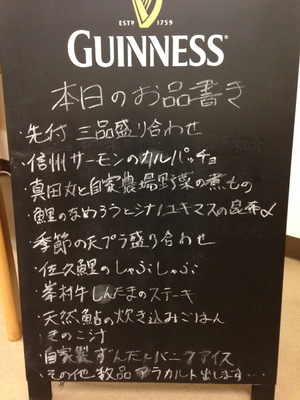 ESTD 1759
GUINNESS
本日のお品書き
・先付 三品盛り合わせ
・信州サーモンのカルパッチョ
・真田丸と自家農場野菜の煮もの
・鯉のなめろうとシナノユキマスの昆布〆
・季節の天プラ盛り合わせ
・佐久鯉のしゃぶしゃぶ
・峯村牛しんたまのステーキ
・天然鮎の炊き込みごはん
・きのこ汁
・自家製ずんだとバニラアイス
・その他数品アラカルト出します・・・